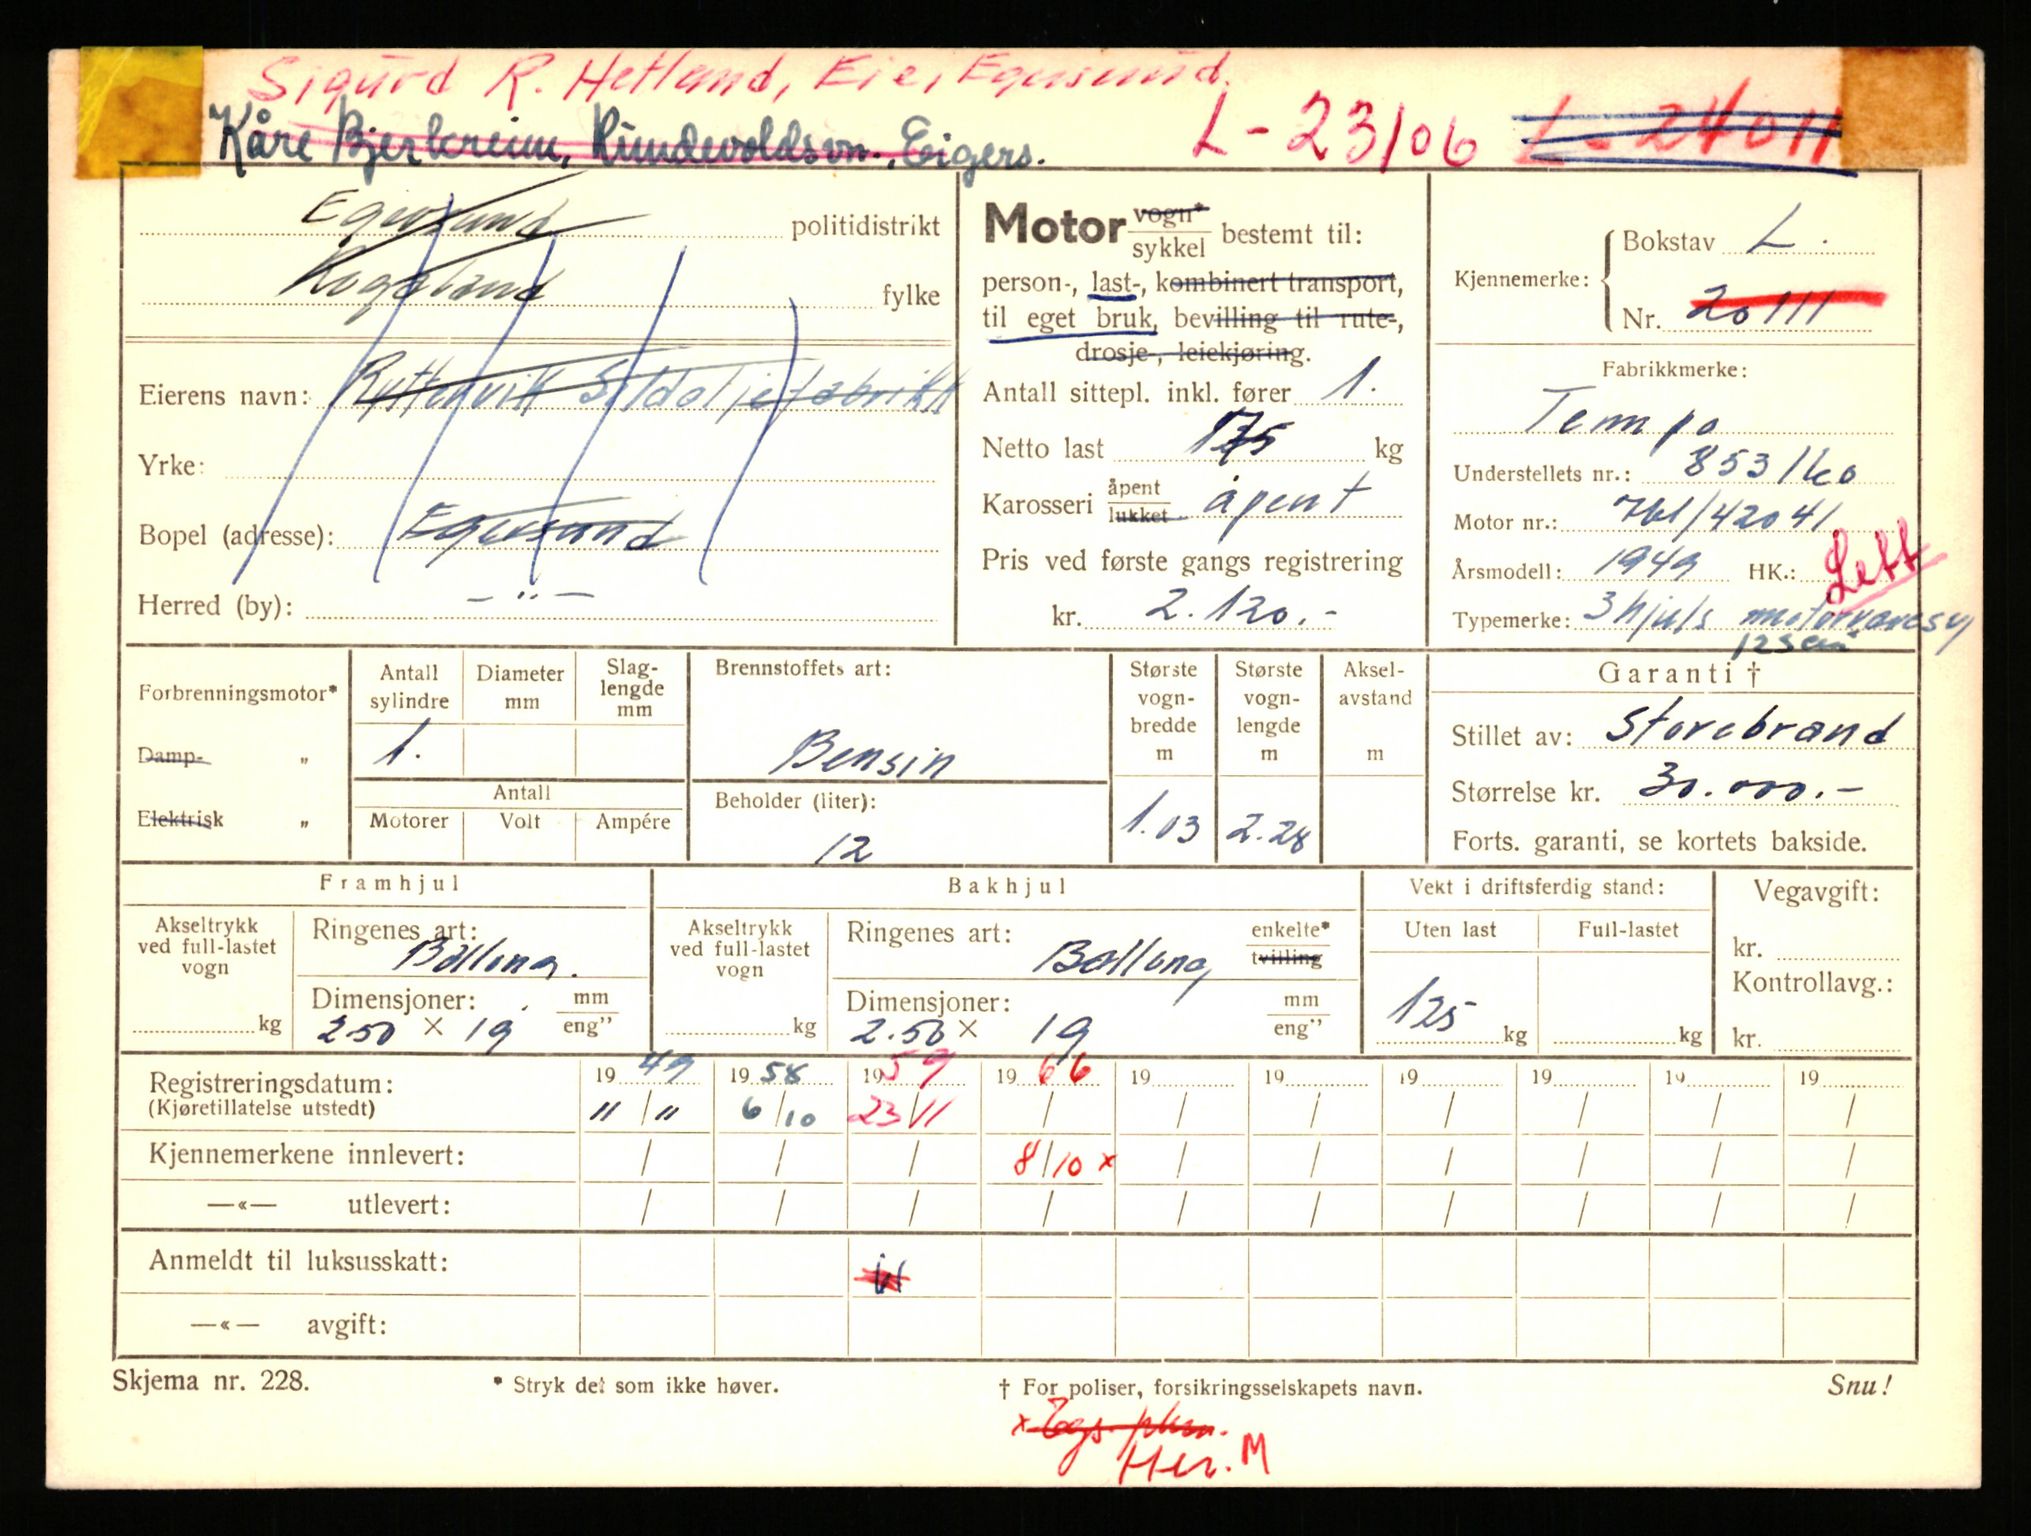 Sigurd R. Hetland, Eie, Egersund.
Kåre Bjerkreim, Rundevoldsvn., Eigers.
L - 23106 L - 24011
Egersund politidistrikt
Rogaland fylke
Eierens navn: Ryttervik Sildoljefabrikk
Yrke:
Bopel (adresse): Egersund
Herred (by): — " —
Motor vogn* sykkel bestemt til:
person-, last-, kombinert transport,
til eget bruk, bevilling til rute-,
drosje-, leiekjøring.
Antall sittepl. inkl. fører 1.
Netto last 175 kg
Karosseri åpent lukket åpent
Pris ved første gangs registrering
kr. 2.120.-
Kjennemerke: Bokstav L.
Nr. 20111
Fabrikkmerke:
Tempo
Understellets nr.: 853160
Motor nr.: 761/42041
Årsmodell: 1949 HK.: Lett
Typemerke: 3 hjuls motorvaresy
125 cm³
Forbrenningsmotor*
Damp- „
Elektrisk „
Antall sylindre
Diameter mm
Slag-lengde mm
1.
Antall
Motorer Volt Ampére
Brennstoffets art:
Bensin
Beholder (liter):
12
Største vogn-bredde m
1.03
Største vogn-lengde m
2.28
Aksel-avstand m
Garanti †
Stillet av: Storebrand
Størrelse kr. 30.000.-
Forts. garanti, se kortets bakside.
Framhjul
Akseltrykk ved full-lastet vogn
kg
Ringenes art:
Ballong.
Dimensjoner: mm eng”
2.50 × 19
Bakhjul
Akseltrykk ved full-lastet vogn
kg
Ringenes art: enkelte* tvilling
Ballong
Dimensjoner: mm eng”
2.50 × 19
Vekt i driftsferdig stand:
Uten last Full-lastet
125 kg kg
Vegavgift:
kr.
Kontrollavg.:
kr.
Registreringsdatum: 19 49 19 58 19 59 19 66 19 19 19 19 19 19
(Kjøretillatelse utstedt) " / " 6/10 23/11 / / / / / / /
Kjennemerkene innlevert: / / / 8/10 x / / / / / /
—«— utlevert: / / / / / / / / / /
Anmeldt til luksusskatt:
—«— avgift:
Skjema nr. 228. * Stryk det som ikke høver. † For poliser, forsikringsselskapets navn. Snu!
x
Her. M